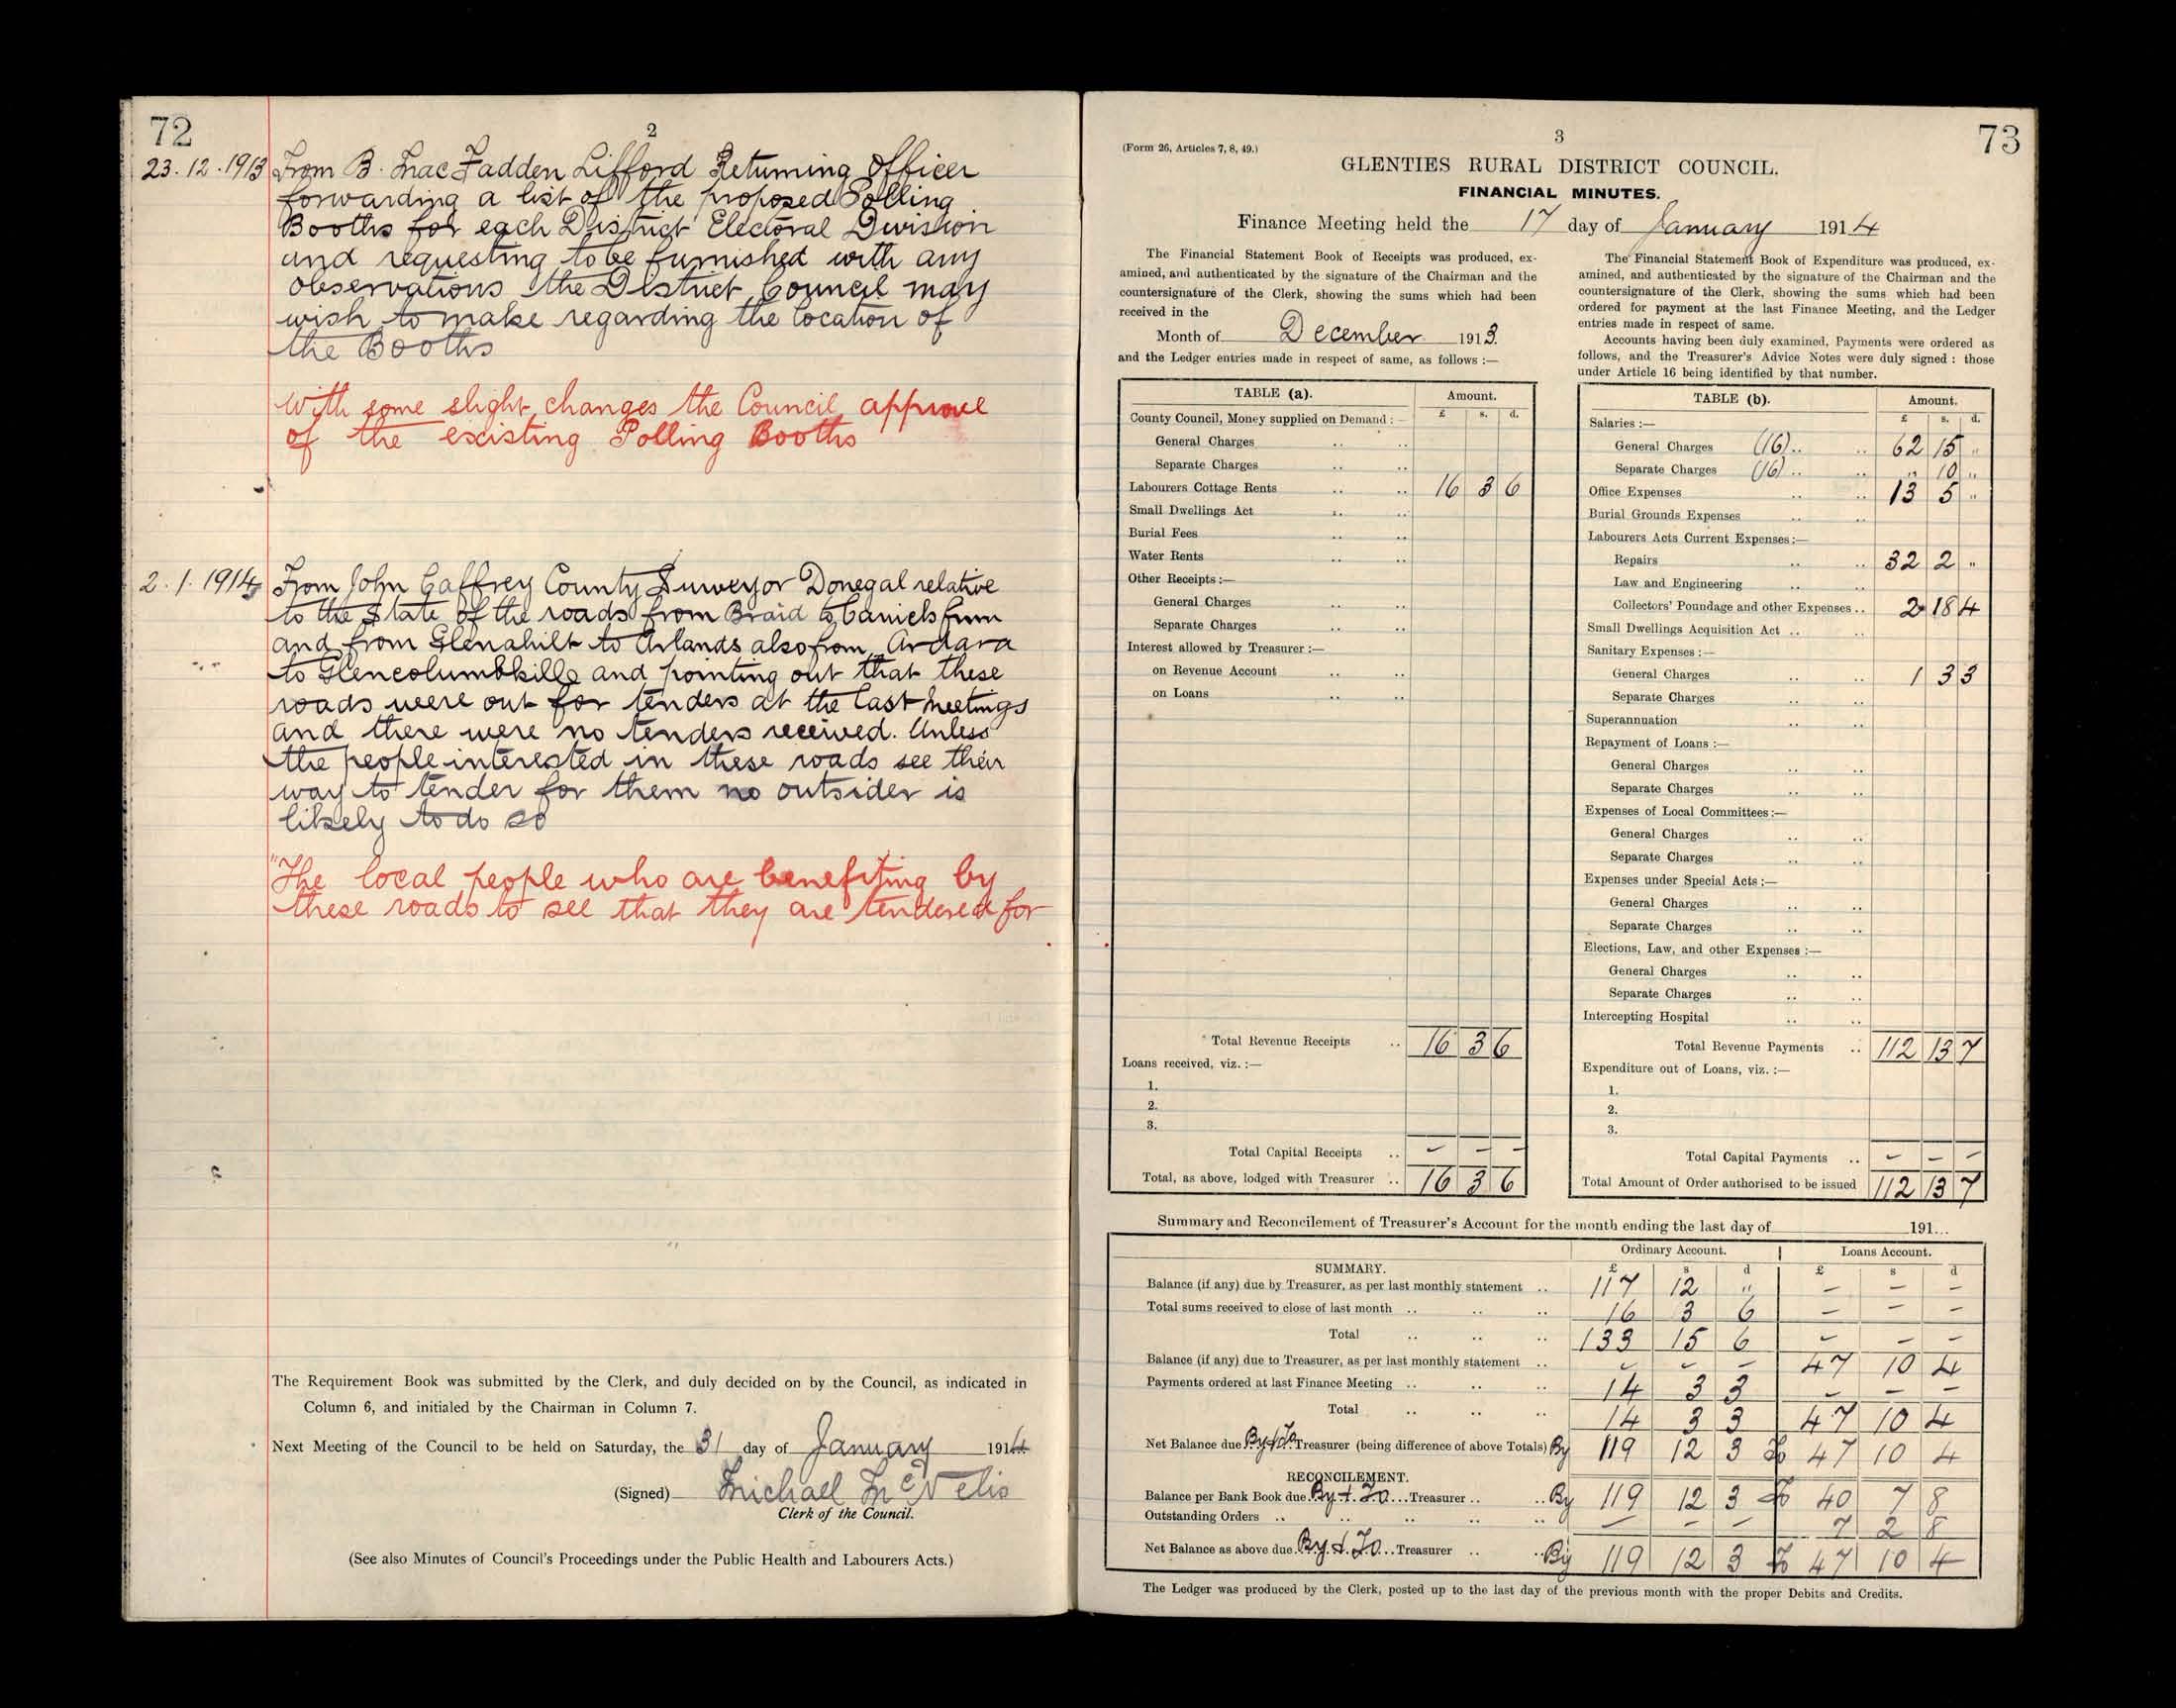 72
2
23.12.1913 From B. MacFadden Lifford Returning Officer
forwarding a list of the proposed Polling
Booths for each District Electoral Division
and requesting to be furnished with any
observations the District Council may
wish to make regarding the location of
the Booths
With some slight changes the Council approve
of the existing Polling Booths
2.1.1914 From John Gaffrey County Surveyor Donegal relative
to the State of the roads from Braid to
and from Glenahilt to also from Ardara
to Glencolumbkille and pointing out that these
roads were out for tenders at the last meetings
and there were no tenders received. Unless
the people interested in these roads see their
way to tender for them no outsider is
likely to do so
"The local people who are benefiting by
these roads to see that they are tendered for
The Requirement Book was submitted by the Clerk, and duly decided on by the Council, as indicated in
Column 6, and initialed by the Chairman in Column 7.
Next Meeting of the Council to be held on Saturday, the 31 day of January 1914
(Signed) Michael McNelis
Clerk of the Council.
(See also Minutes of Council's Proceedings under the Public Health and Labourers Acts.)
73
3
(Form 26, Articles 7, 8, 49.)
GLENTIES RURAL DISTRICT COUNCIL.
FINANCIAL MINUTES.
Finance Meeting held the 17 day of January 1914
The Financial Statement Book of Receipts was produced, ex-
amined, and authenticated by the signature of the Chairman and the
countersignature of the Clerk, showing the sums which had been
received in the
Month of December 1913.
and the Ledger entries made in respect of same, as follows :—
TABLE (a). Amount.
£ s. d.
County Council, Money supplied on Demand : –
General Charges .. ..
Separate Charges .. ..
Labourers Cottage Rents .. .. 16 3 6
Small Dwellings Act .. ..
Burial Fees .. ..
Water Rents .. ..
Other Receipts :—
General Charges .. ..
Separate Charges .. ..
Interest allowed by Treasurer :—
on Revenue Account .. ..
on Loans .. ..
Total Revenue Receipts .. 16 3 6
Loans received, viz. :—
1.
2.
3.
Total Capital Receipts .. – – –
Total, as above, lodged with Treasurer .. 16 3 6
The Financial Statement Book of Expenditure was produced, ex-
amined, and authenticated by the signature of the Chairman and the
countersignature of the Clerk, showing the sums which had been
ordered for payment at the last Finance Meeting, and the Ledger
entries made in respect of same.
Accounts having been duly examined, Payments were ordered as
follows, and the Treasurer's Advice Notes were duly signed : those
under Article 16 being identified by that number.
TABLE (b). Amount.
£ s. d.
Salaries :—
General Charges (16) .. .. 62 15 "
Separate Charges (16) .. .. " 10 "
Office Expenses .. .. 13 5 "
Burial Grounds Expenses .. ..
Labourers Acts Current Expenses :—
Repairs .. .. 32 2 "
Law and Engineering .. ..
Collectors' Poundage and other Expenses .. 2 18 4
Small Dwellings Acquisition Act .. ..
Sanitary Expenses :—
General Charges .. .. 1 3 3
Separate Charges .. ..
Superannuation .. ..
Repayment of Loans :—
General Charges .. ..
Separate Charges .. ..
Expenses of Local Committees :—
General Charges .. ..
Separate Charges .. ..
Expenses under Special Acts :—
General Charges .. ..
Separate Charges .. ..
Elections, Law, and other Expenses :—
General Charges .. ..
Separate Charges .. ..
Intercepting Hospital .. ..
Total Revenue Payments .. 112 13 7
Expenditure out of Loans, viz. :—
1.
2.
3.
Total Capital Payments .. – – –
Total Amount of Order authorised to be issued 112 13 7
Summary and Reconcilement of Treasurer's Account for the month ending the last day of 191...
Ordinary Account. Loans Account.
SUMMARY. £ s d £ s d
Balance (if any) due by Treasurer, as per last monthly statement .. 117 12 " – – –
Total sums received to close of last month .. .. .. 16 3 6 – – –
Total .. .. .. 133 15 6 – – –
Balance (if any) due to Treasurer, as per last monthly statement .. – – – 47 10 4
Payments ordered at last Finance Meeting .. .. .. 14 3 3 – – –
Total .. .. .. 14 3 3 47 10 4
Net Balance due By & To Treasurer (being difference of above Totals) By 119 12 3 To 47 10 4
RECONCILEMENT.
Balance per Bank Book due By & To Treasurer .. .. By 119 12 3 To 40 7 8
Outstanding Orders .. .. .. .. .. – – – 7 2 8
Net Balance as above due By & To Treasurer .. .. By 119 12 3 To 47 10 4
The Ledger was produced by the Clerk, posted up to the last day of the previous month with the proper Debits and Credits.